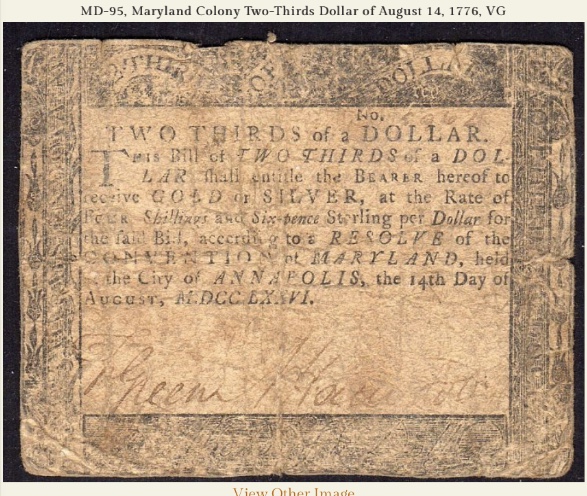 MD-95, Maryland Colony Two-Thirds Dollar of August 14, 1776, VG
THIR OF DOLLA
No.
TWO THIRDS of a DOLLAR.
THIS Bill of TWO THIRDS of a DOL-
LAR shall entitle the BEARER hereof to
receive GOLD or SILVER, at the Rate of
FOUR Shillings and Six-pence Sterling per Dollar for
the said Bill, according to a RESOLVE of the
CONVENTION of MARYLAND, held
the City of ANNAPOLIS, the 14th Day of
AUGUST, M.DCC.LXXVI.
Green
View Other Image